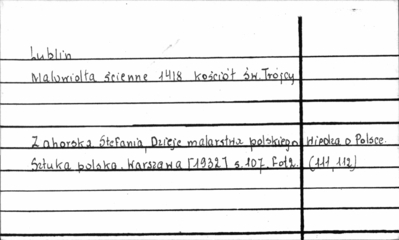 Lublin
Malowidła ścienne 1418 kościół św. Trójcy
Zahorska Stefania, Dzieje malarstwa polskiego Wiedza o Polsce.
Sztuka polska. Warszawa [1932] s. 107. Fot. (111, 112)